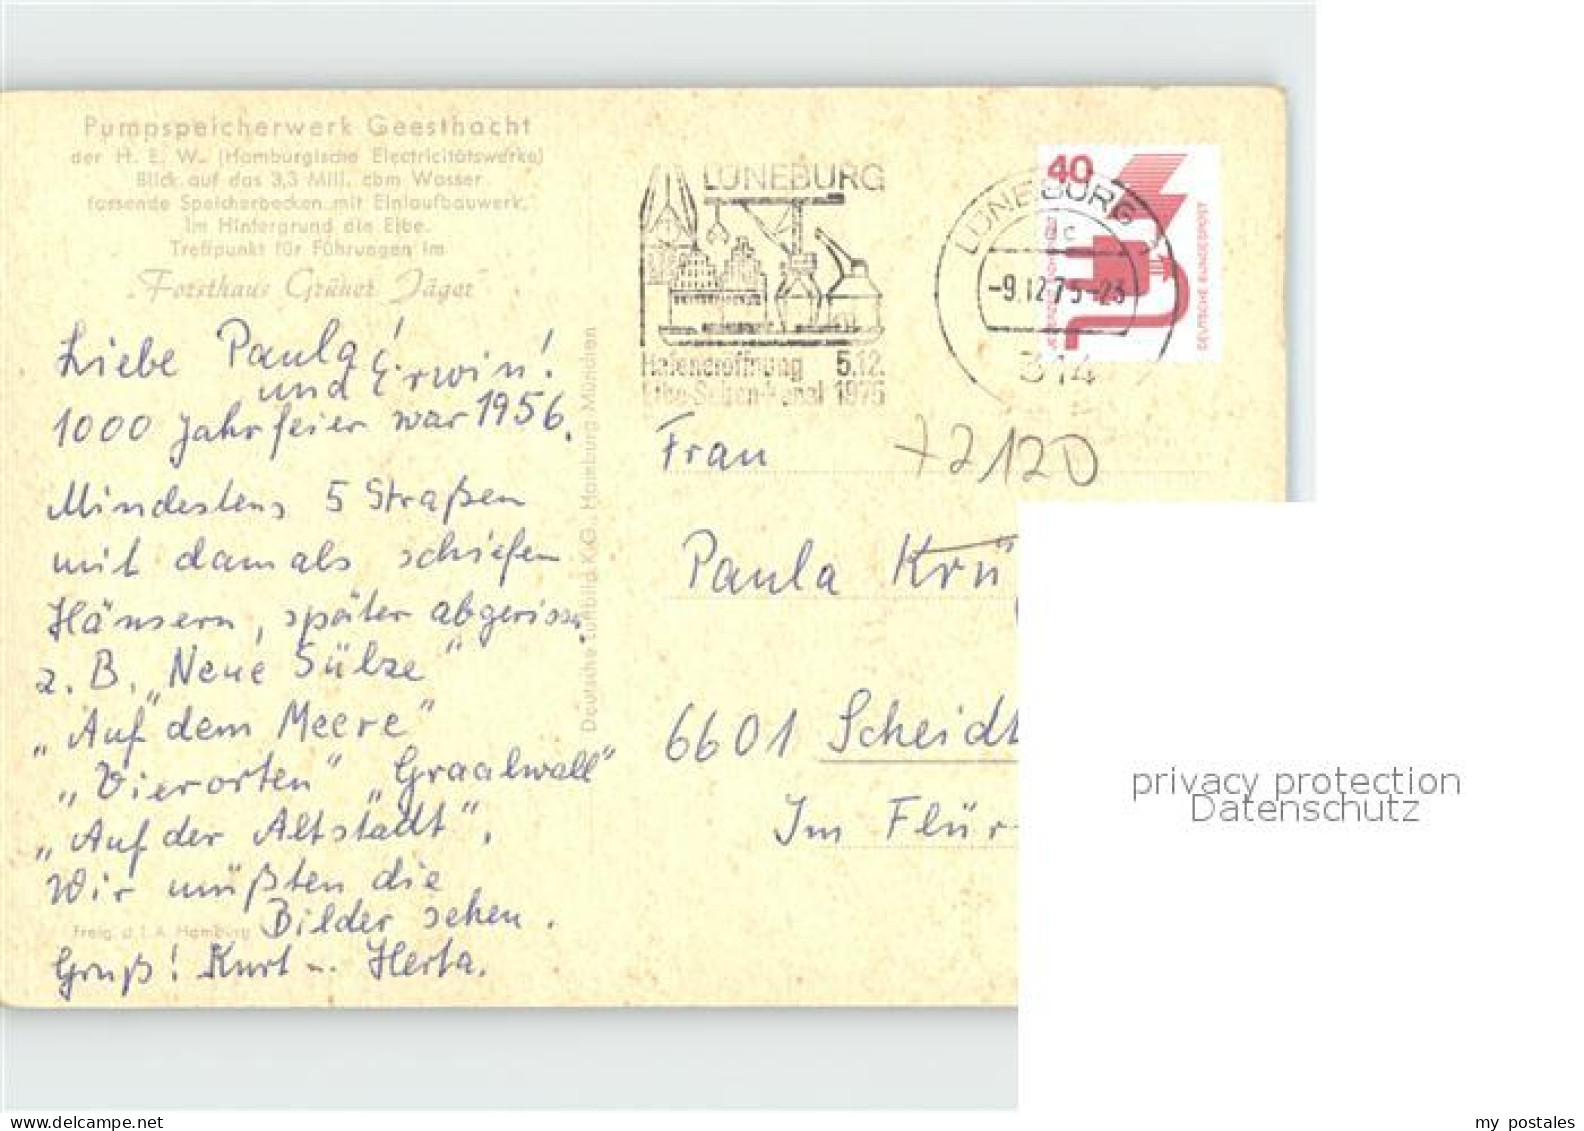 Pumpspeicherwerk Geesthacht
der H. E. W. (Hamburgische Electricitätswerke)
Blick auf das 3,3 Mill. cbm Wasser
fassende Speicherbecken mit Einlaufbauwerk.
Im Hintergrund die Elbe.
Treffpunkt für Führungen im
„Forsthaus Grüner Jäger"
Liebe Paula!
und Erwin!
1000 Jahrfeier war 1956.
Mindestens 5 Straßen
mit damals schiefen
Häusern, später abgerissen,
z. B. „Neue Sülze"
„Auf dem Meere"
„Vierorten" „Graalwall"
„Auf der Altstadt".
Wir müßten die
Bilder sehen.
Freig. d. L A Hamburg
Gruß! Kurt u. Herta.
Deutsche Luftbild K.G. Hamburg München
LÜNEBURG
Hafeneröffnung 5.12.
Elbe-Seiten-Kanal 1975
LÜNEBURG
-9.12.75-23
314
40
JEDERZEIT SICHERHEIT
DEUTSCHE BUNDESPOST
Frau
+2120
Paula Krü
6601 Scheidt
Im Flür
privacy protection
Datenschutz
my postales
www.delcampe.net